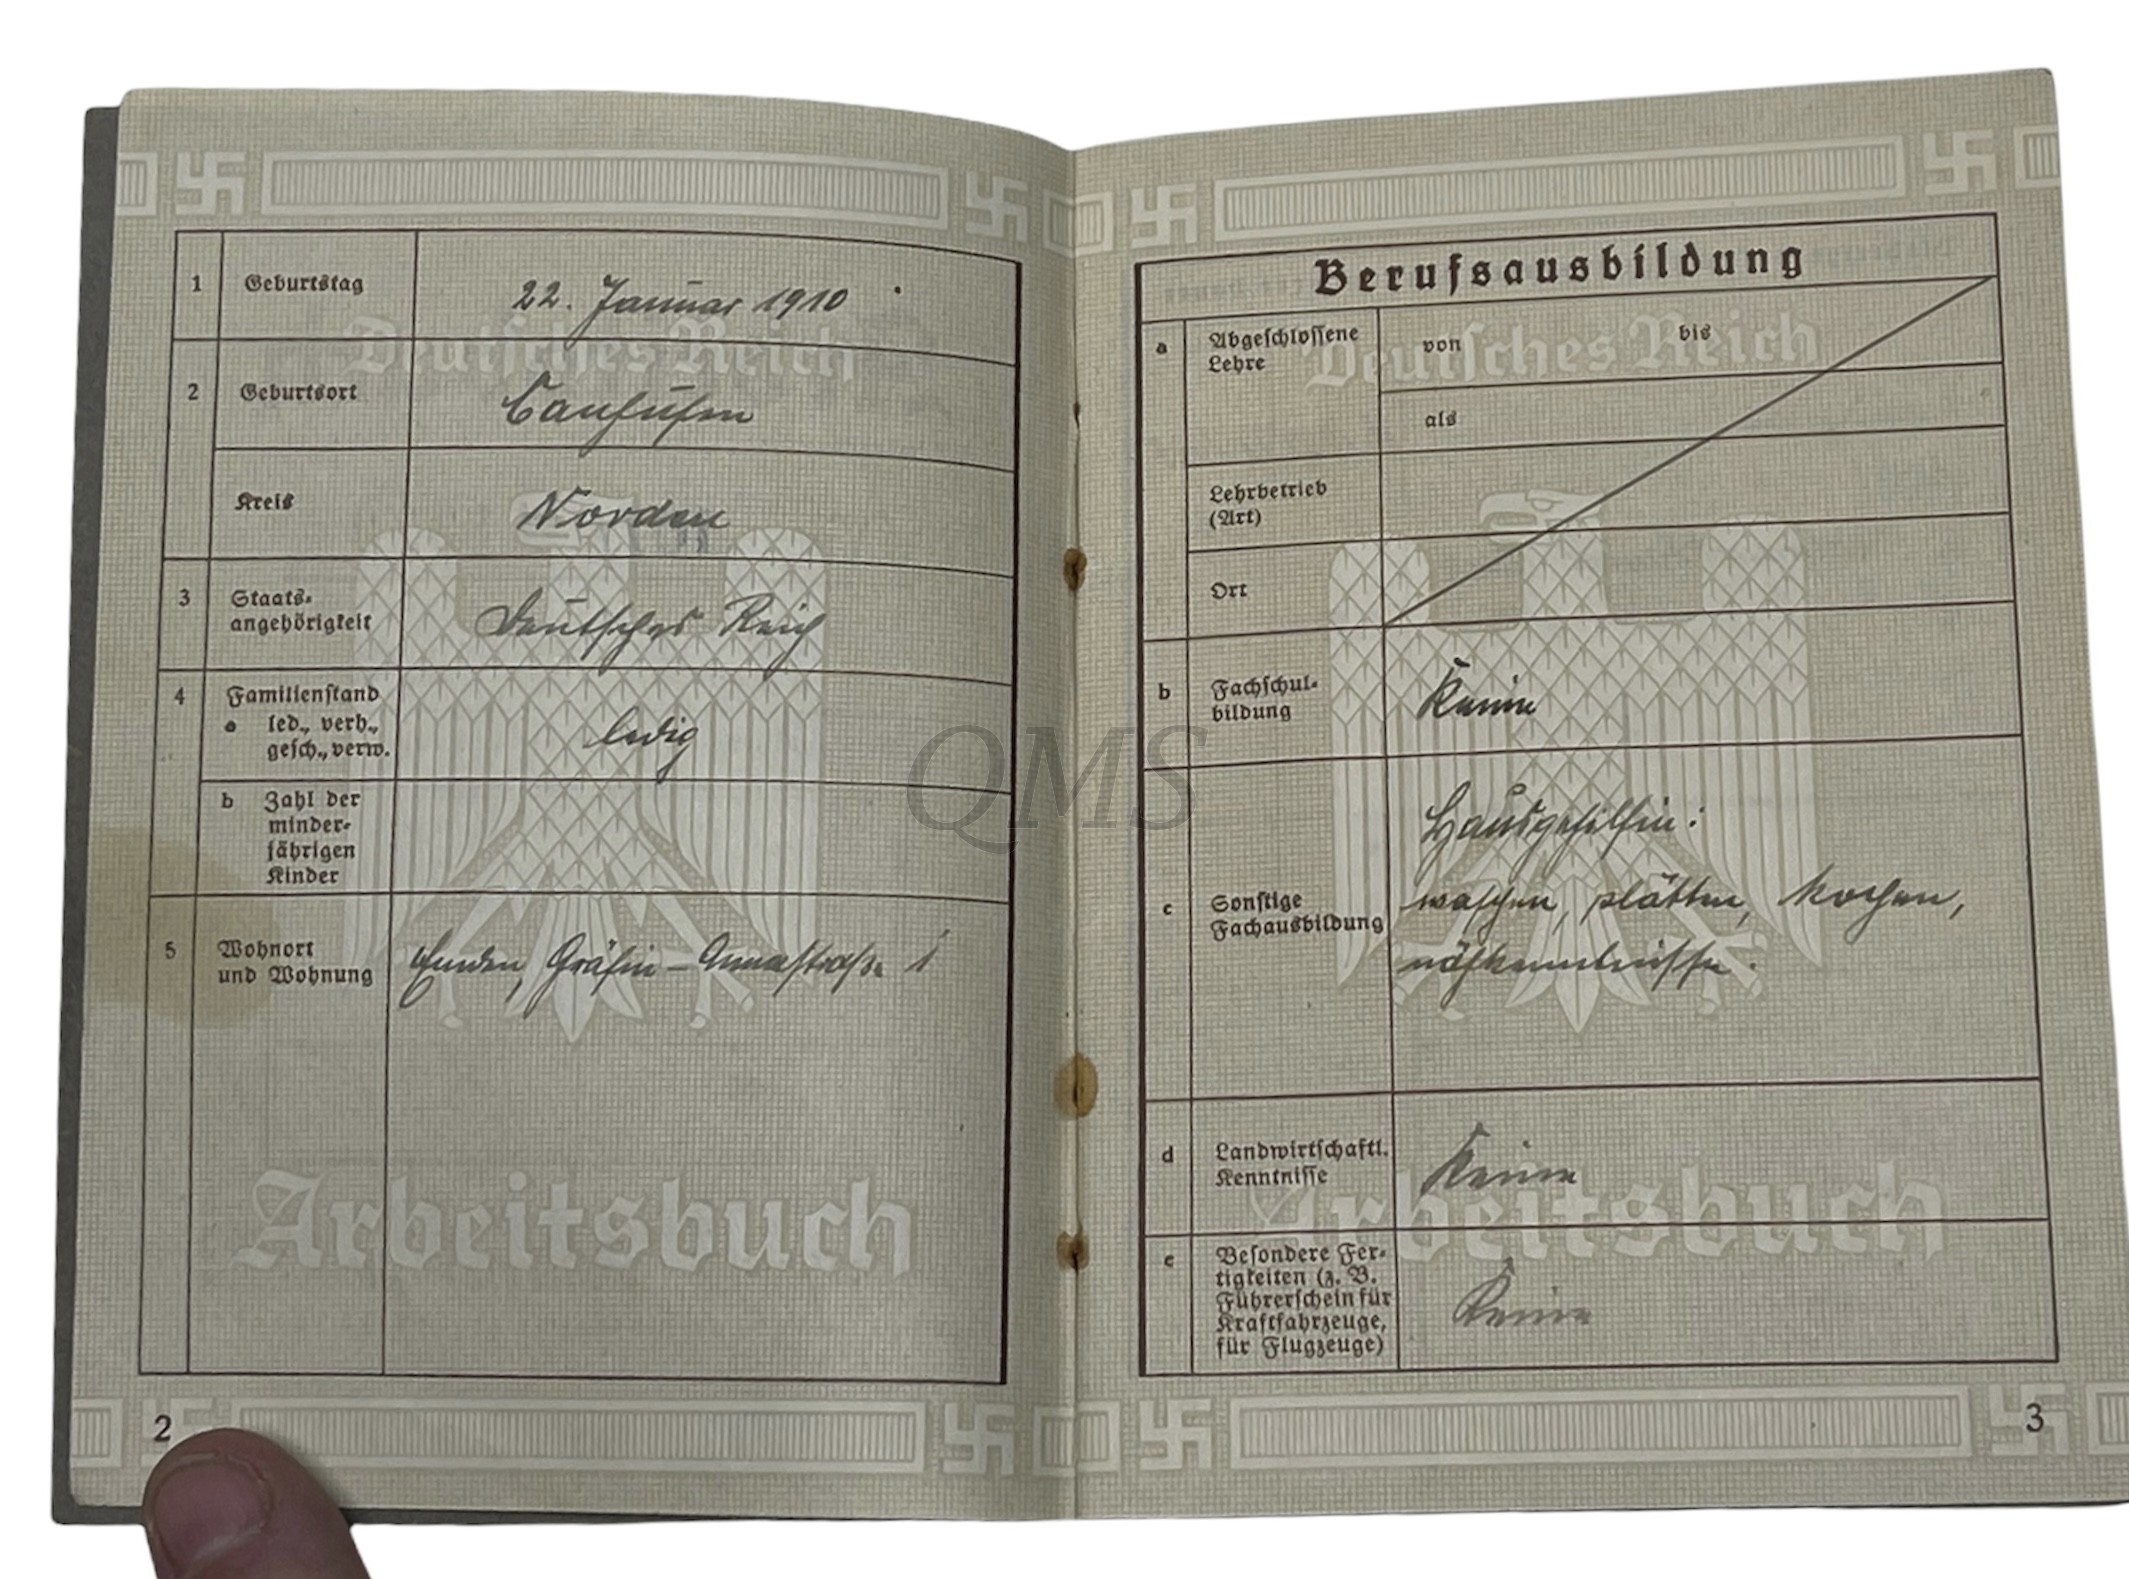 1 Geburtstag 22. Januar 1910
Deutsches Reich
2 Geburtsort Canhusen
Kreis Norden
3 Staats-
angehörigkeit Deutsches Reich
4 Familienstand
a led., verh.,
gesch., verw. ledig
b Zahl der
minder-
jährigen
Kinder
5 Wohnort
und Wohnung Emden, Gräfin-Annastraße 1
Arbeitsbuch
2
QMS
Berufsausbildung
Deutsches Reich
a Abgeschlossene
Lehre von bis
als
Lehrbetrieb
(Art)
Ort
b Fachschul-
bildung Keine
Hausgehilfin:
c Sonstige
Fachausbildung waschen, plätten, kochen,
nähkenntnisse.
d Landwirtschaftl.
Kenntnisse Keine
Arbeitsbuch
e Besondere Fer-
tigkeiten (z. B.
Führerschein für
Kraftfahrzeuge,
für Flugzeuge) Keine
3